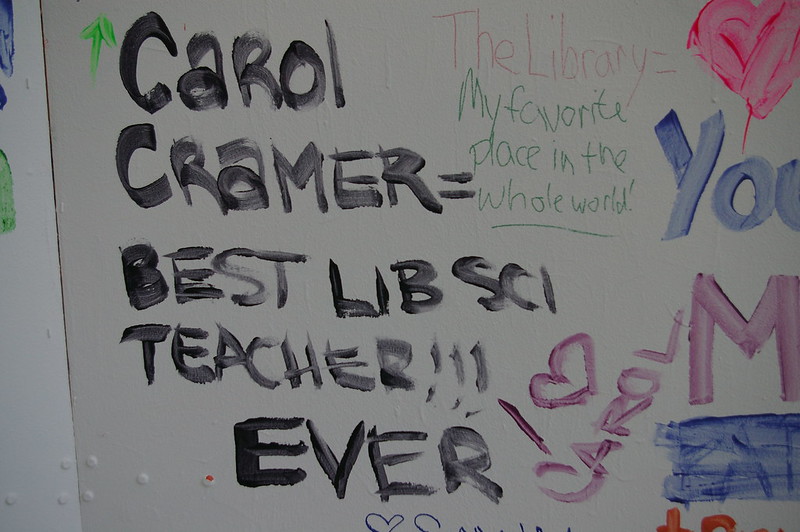 CAROL
CRAMER=
BEST LIB SCI
TEACHER!!!
EVER
The Library=
My favorite
place in the
whole world!
I ♡
CAROL
You
M